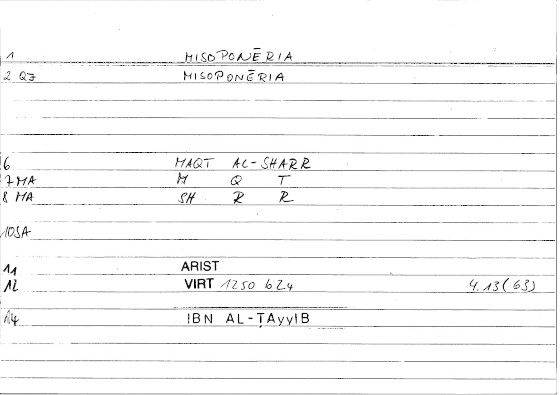 1 MISOPONĒRIA
2 QJ MISOPONĒRIA
6 MAQT AL-SHARR
7 MA M Q T
8 MA SH R R
10SA
11 ARIST
12 VIRT 1250 b 24 4.13(63)
14 IBN AL-ṬAyyIB